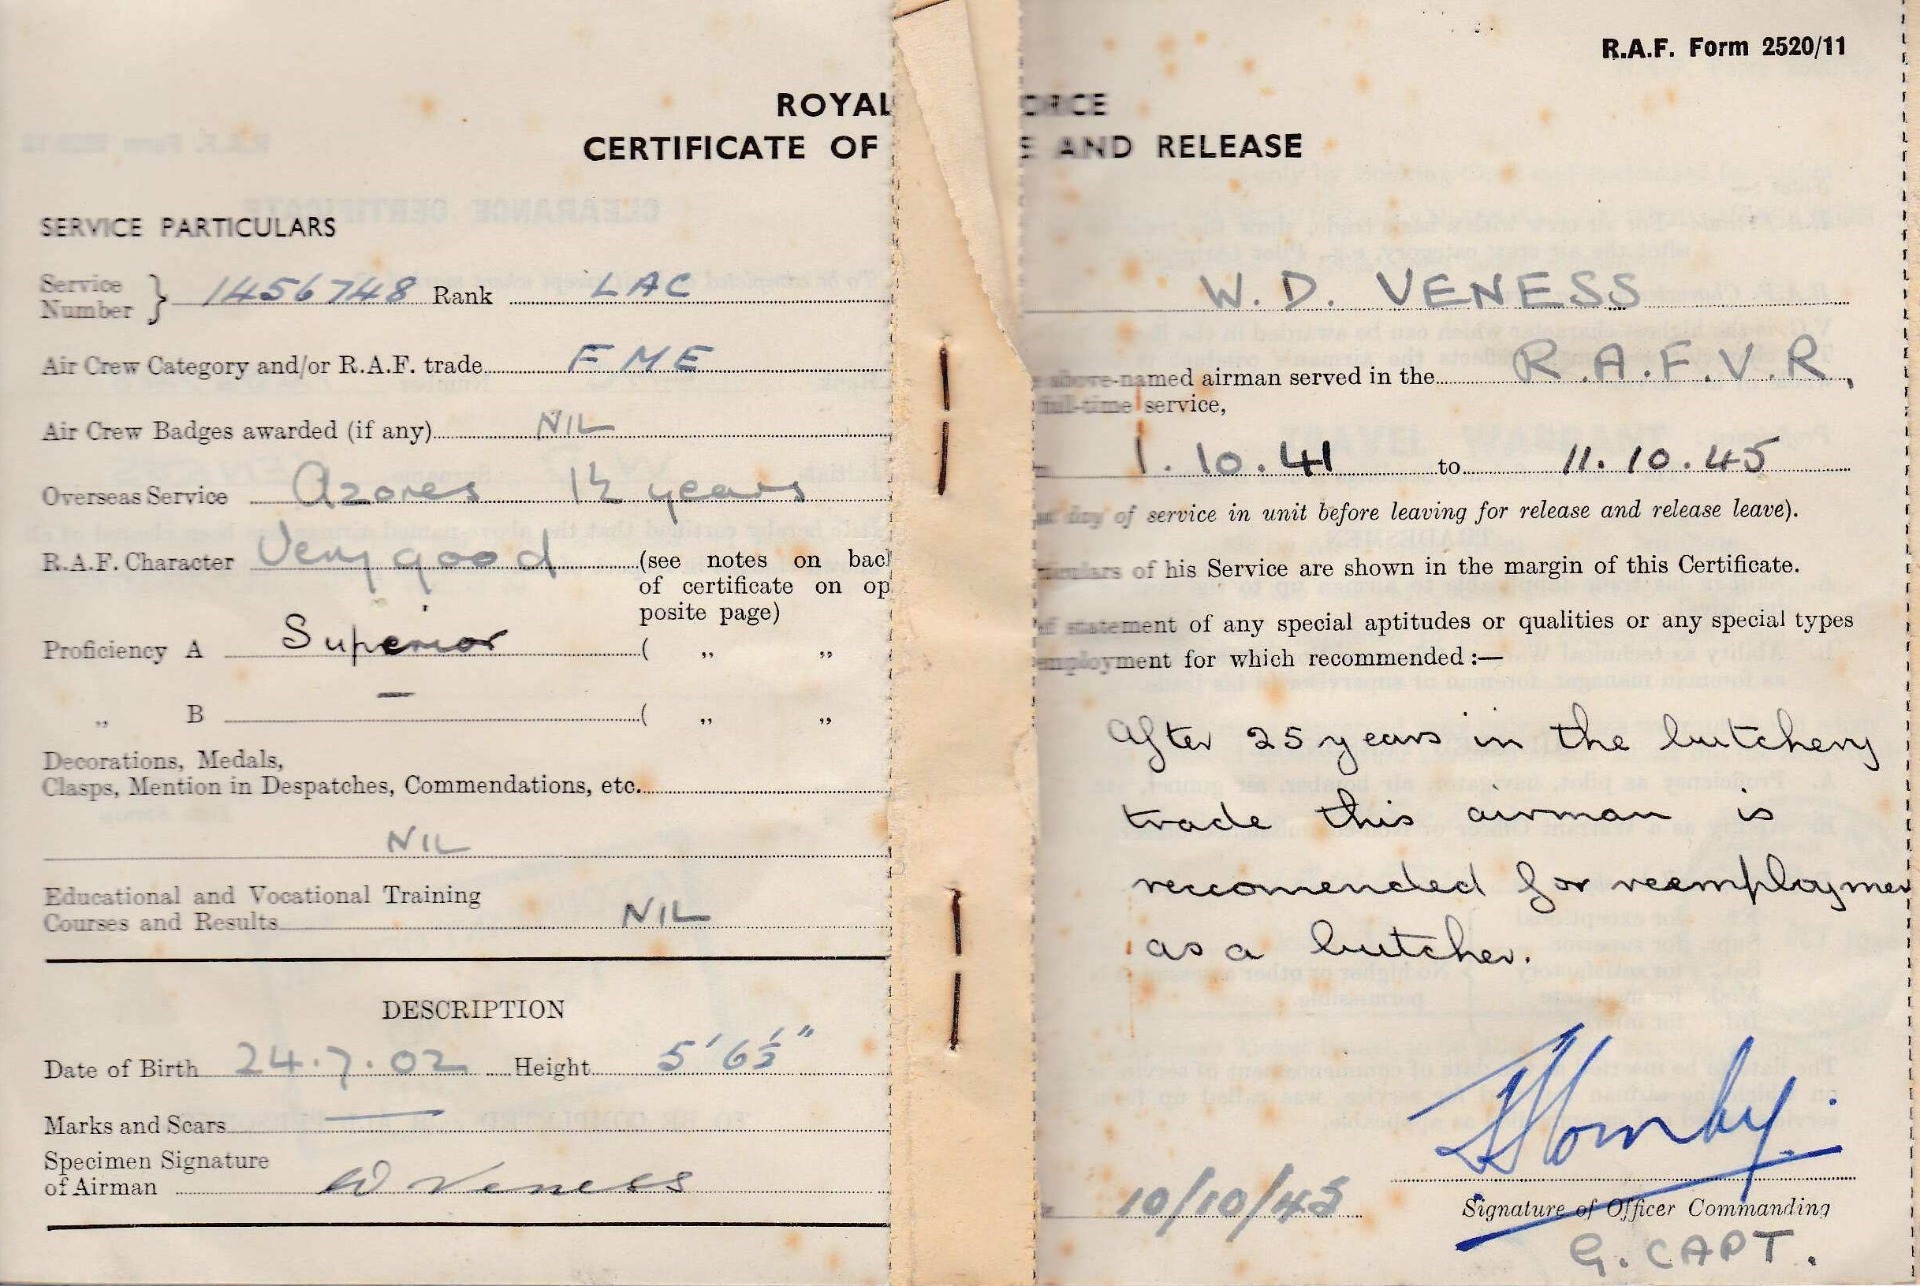 R.A.F. Form 2520/11
ROYAL ORCE
CERTIFICATE OF E AND RELEASE
SERVICE PARTICULARS
Service Number } 1456748 Rank LAC
Air Crew Category and/or R.A.F. trade F M E
Air Crew Badges awarded (if any) NIL
Overseas Service Azores 1½ years
R.A.F. Character Very good (see notes on back
of certificate on op
posite page)
Proficiency A Superior ( „ „
„ B — ( „ „
Decorations, Medals,
Clasps, Mention in Despatches, Commendations, etc.
NIL
Educational and Vocational Training
Courses and Results NIL
DESCRIPTION
Date of Birth 24.7.02 Height 5' 6½"
Marks and Scars —
Specimen Signature
of Airman W Veness
W. D. VENESS
above-named airman served in the R.A.F.V.R,
full-time service,
1.10.41 to 11.10.45
day of service in unit before leaving for release and release leave).
of his Service are shown in the margin of this Certificate.
statement of any special aptitudes or qualities or any special types
employment for which recommended :—
After 25 years in the butchery
trade this airman is
reccomended for reemployme
as a butcher.
10/10/45
Signature of Officer Commanding
G. CAPT.